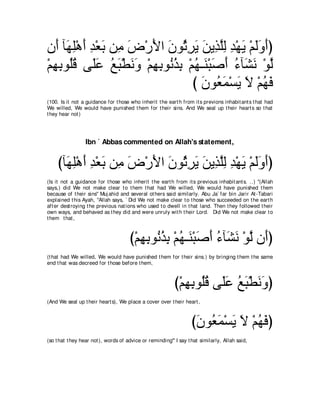 أَوَلَمْ يَهْدِ لِلَّذِينَ يَرِثُونَ الأَرْضَ مِن بَعْدِ أَهْلِهَآ أَن
لَّوْ نَشَآءُ أَصَبْنَـهُمْ بِذُنُوبِهِمْ وَنَطْبَعُ عَلَى قُلُوبِهِمْ
فَهُمْ لاَ يَسْمَعُونَ )
(100. Is it not a guidance for those who inherit the earth from its previous inhabitants that had
We willed, We would have punished them for their sins. And We seal up their hearts so that
they hear not)
Ibn `Abbas commented on Allah's statement,
(أَوَلَمْ يَهْدِ لِلَّذِينَ يَرِثُونَ الأَرْضَ مِن بَعْدِ أَهْلِهَآ)
(Is it not a guidance for those who inherit the earth from its previous inhabitants. ..) "(Allah
says,) did We not make clear to them that had We willed, We would have punished them
because of their sins" Mujahid and several others said similarly. Abu Ja`far bin Jarir At-Tabari
explained this Ayah, "Allah says, `Did We not make clear to those who succeeded on the earth
after destroying the previous nations who used to dwell in that land. Then they followed their
own ways, and behaved as they did and were unruly with their Lord. Did We not make clear to
them that,
(أَن لَّوْ نَشَآءُ أَصَبْنَـهُمْ بِذُنُوبِهِمْ)
(that had We willed, We would have punished them for their sins.) by bringing them the same
end that was decreed for those before them,
(وَنَطْبَعُ عَلَى قُلُوبِهِمْ)
(And We seal up their hearts), We place a cover over their heart,
(فَهُمْ لاَ يَسْمَعُونَ)
(so that they hear not), words of advice or reminding'" I say that similarly, Allah said,